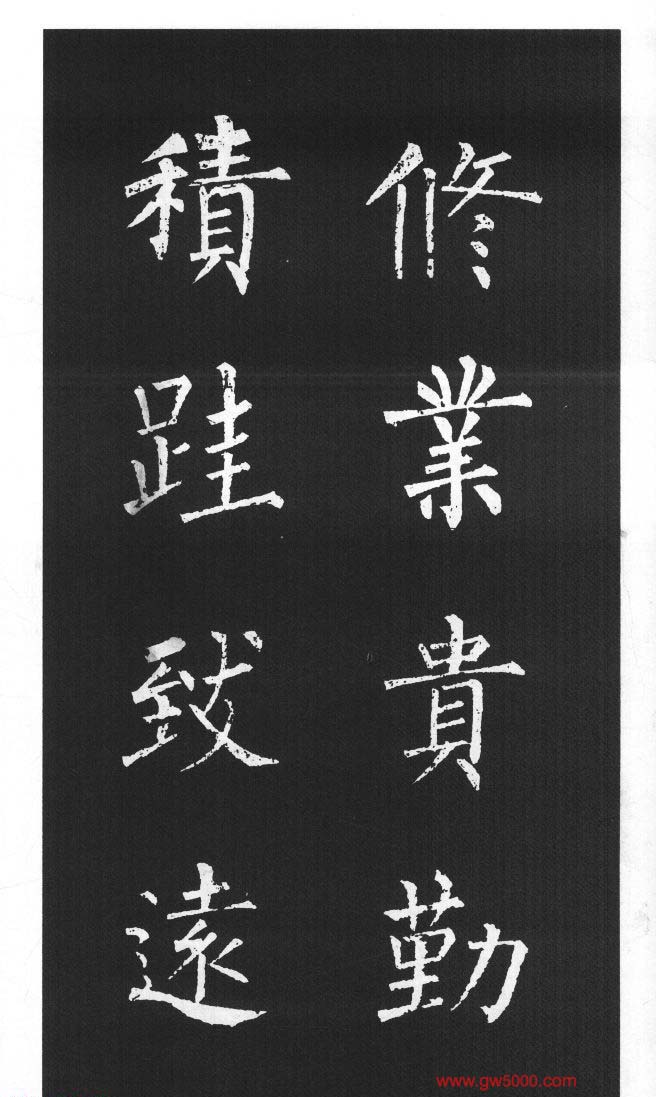 修業貴勤
積跬致遠
www.gw5000.com